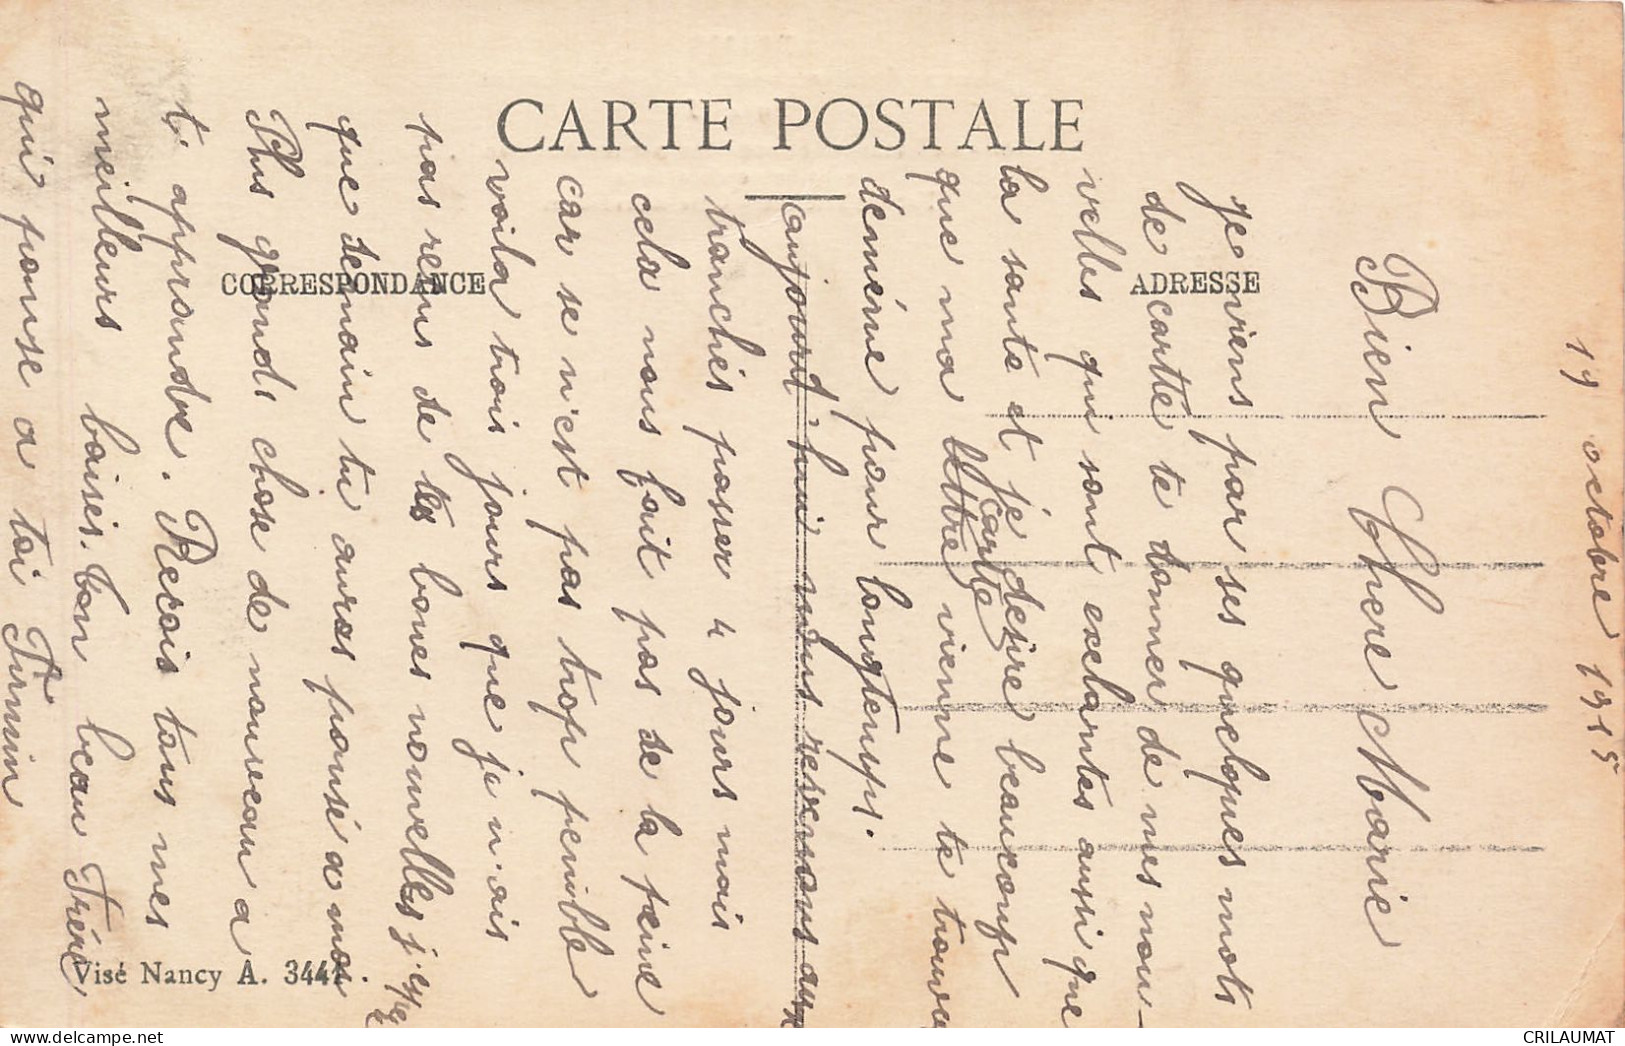 CARTE POSTALE
CORRESPONDANCE
ADRESSE
19 octobre 1915
Bien Chere Marie
Je viens par ses quelques mots
de cartte te donner de mes nou-
velles qui sont exelantes ausi que
la sante et je desire beaucoup
que ma lettre carte vienne te trouva
deméme pour longtemps.
aujourd'hui nous revenons aux
tranchés passer 4 jours mais
cela nous fait pas de la peine
car se n'est pas trop penible
voila trois jours que je n'ais
pas reçus de tes bones nouvelles j'espe
que demain tu auras pensé a moi
Plus grands chose de nouveau a
t' apprendre. Recois tous mes
meilleurs baises. ton beau Frére
qui pense a toi Firmin
Visé Nancy A. 3441.
CRILAUMAT
https://www.delcampe.net